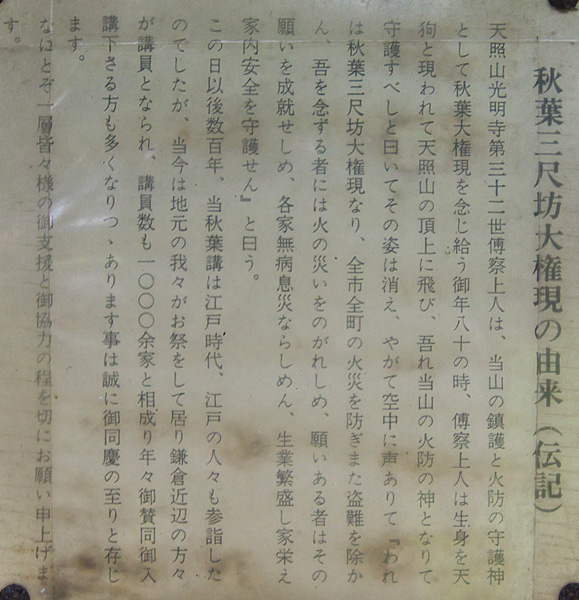 秋葉三尺坊大権現の由来（伝記）
天照山光明寺第三十二世傅察上人は、当山の鎮護と火防の守護神
として秋葉大権現を念じ給う御年八十の時、傅察上人は生身を天
狗と現われて天照山の頂上に飛び、吾れ当山の火防の神となりて
守護すべしと曰いてその姿は消え、やがて空中に声ありて『われ
は秋葉三尺坊大権現なり、全市全町の火災を防ぎまた盗難を除か
ん、吾を念ずる者には火の災いをのがれしめ、願いある者はその
願いを成就せしめ、各家無病息災ならしめん、生業繁盛し家栄え
家内安全を守護せん』と曰う。
この日以後数百年、当秋葉講は江戸時代、江戸の人々も参詣した
のでしたが、当今は地元の我々がお祭をして居り鎌倉近辺の方々
が講員となられ、講員数も一〇〇〇余家と相成り年々御賛同御入
講下さる方も多くなりつゝあります事は誠に御同慶の至りと存じ
ます。
なにとぞ一層皆々様の御支援と御協力の程を切にお願い申上げま
す。